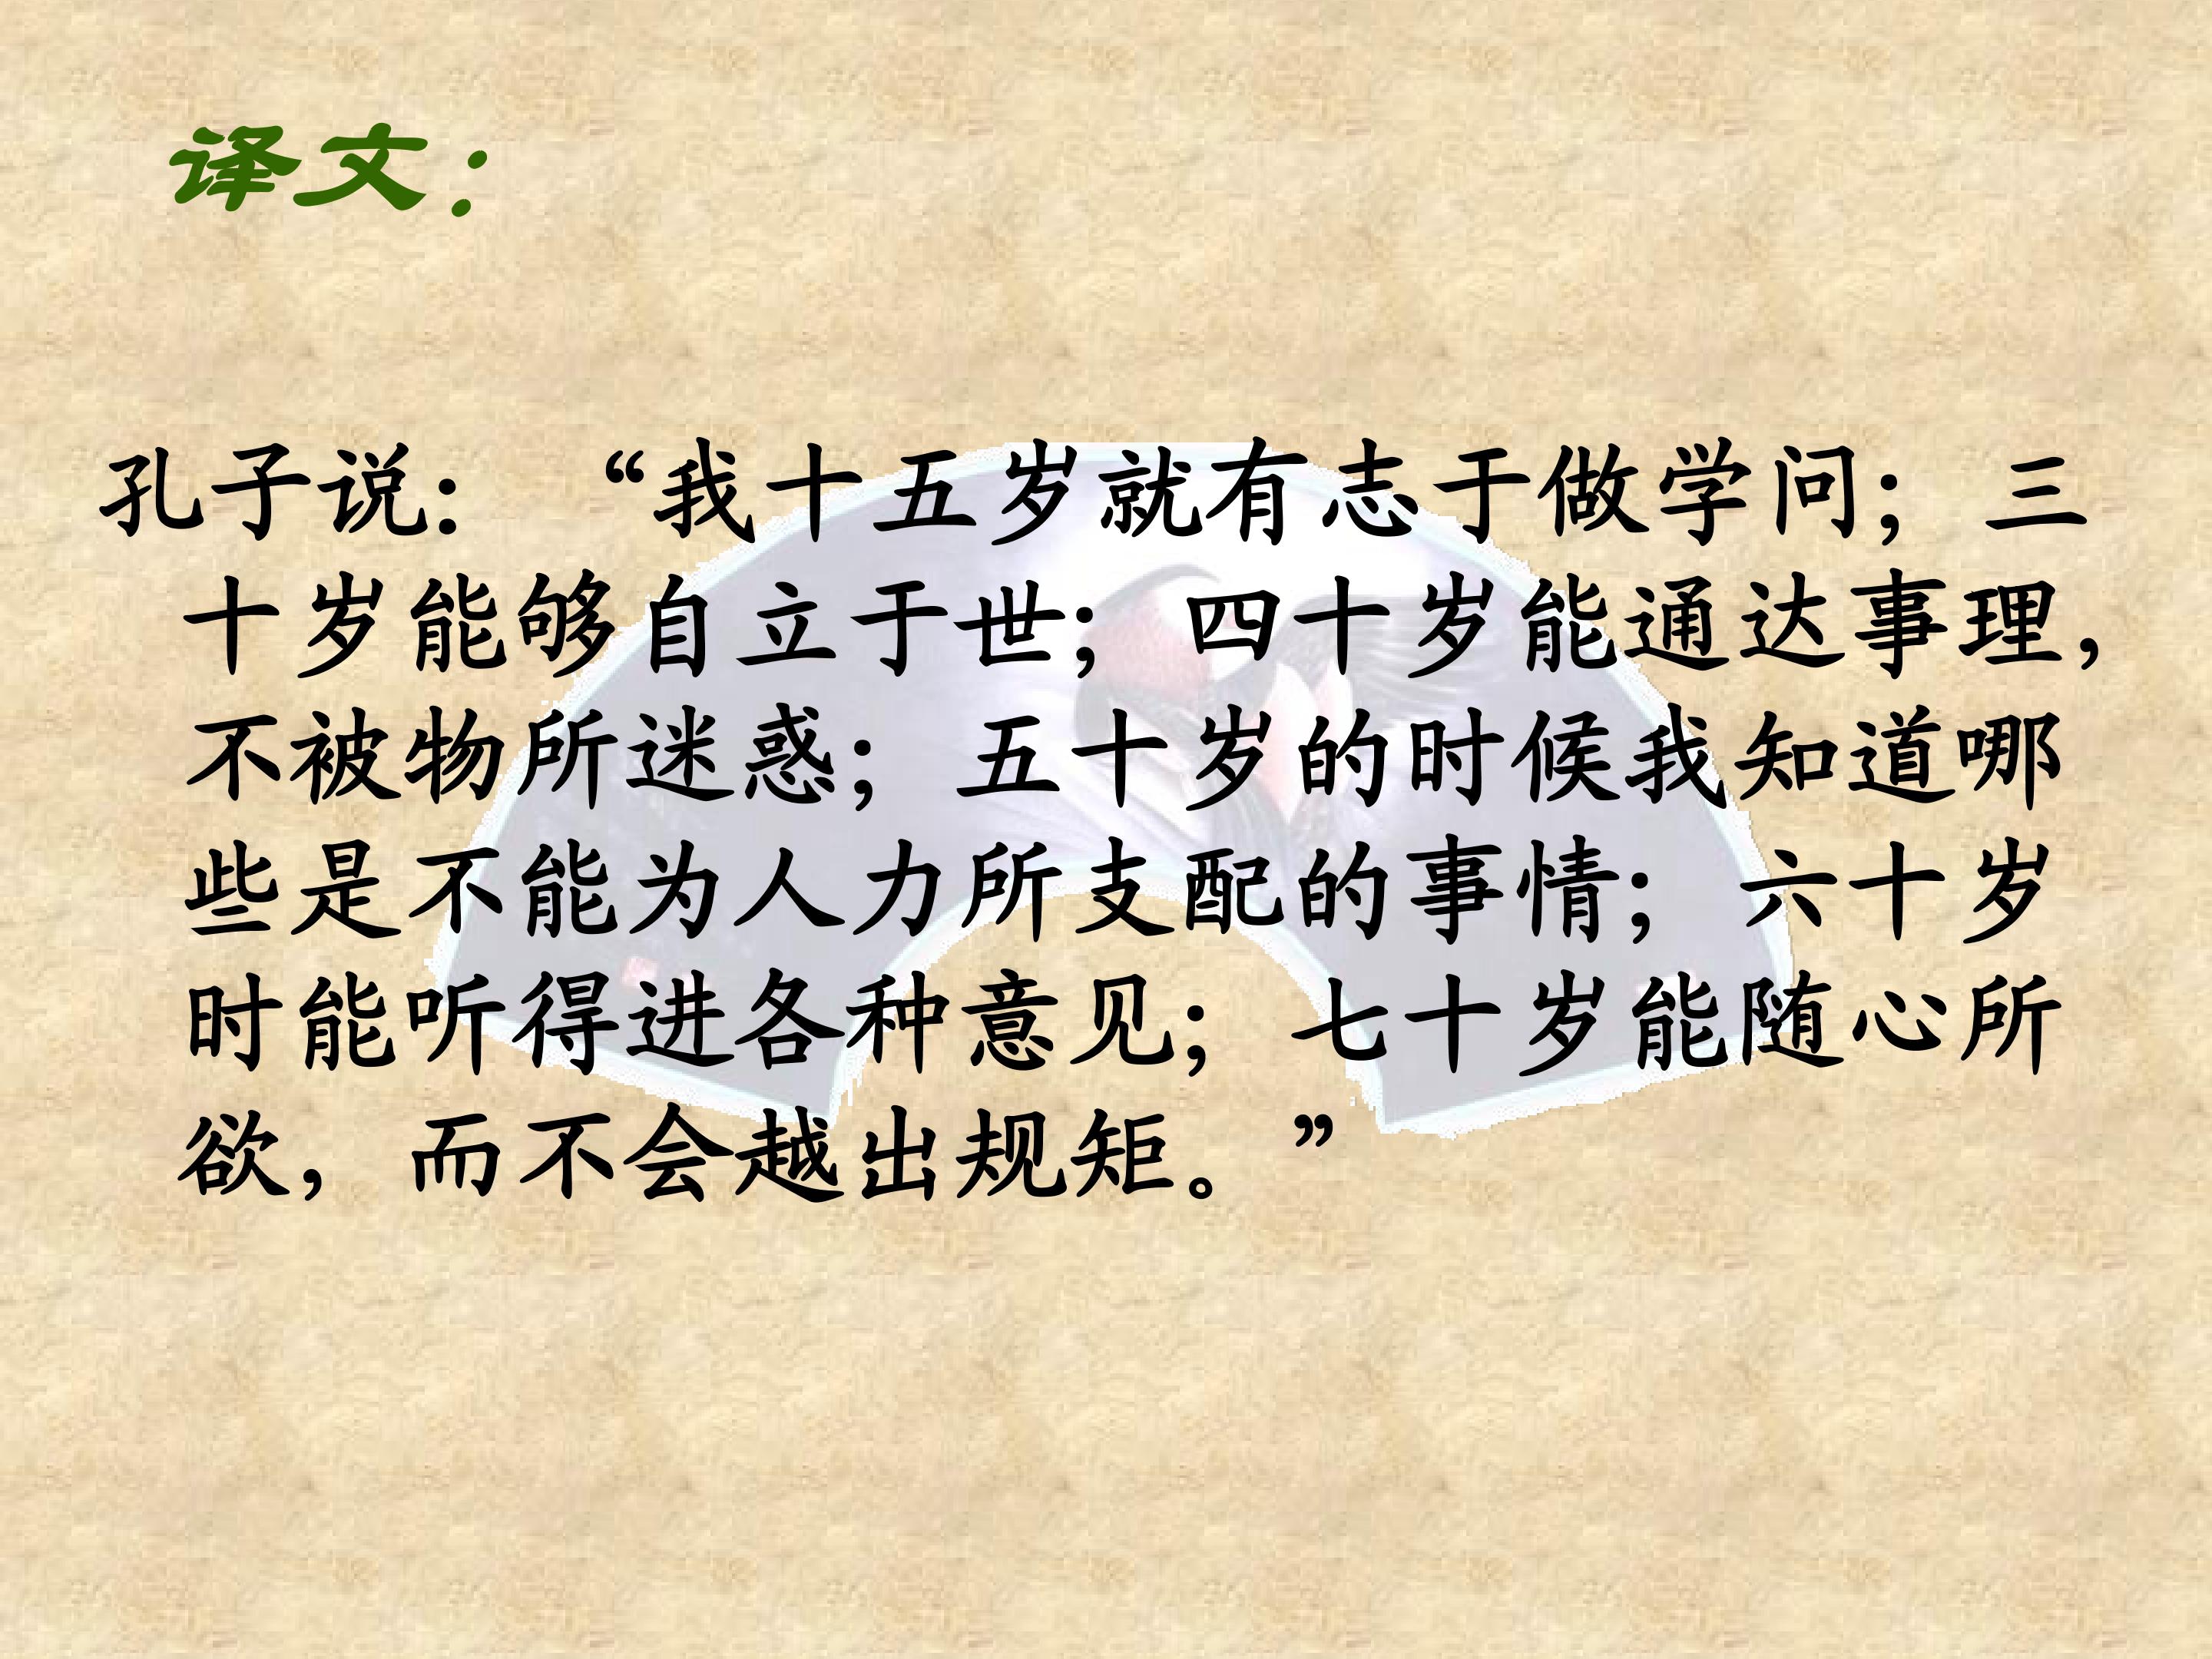 译文：
孔子说：“我十五岁就有志于做学问；三
十岁能够自立于世；四十岁能通达事理，
不被物所迷惑；五十岁的时候我知道哪
些是不能为人力所支配的事情；六十岁
时能听得进各种意见；七十岁能随心所
欲，而不会越出规矩。”